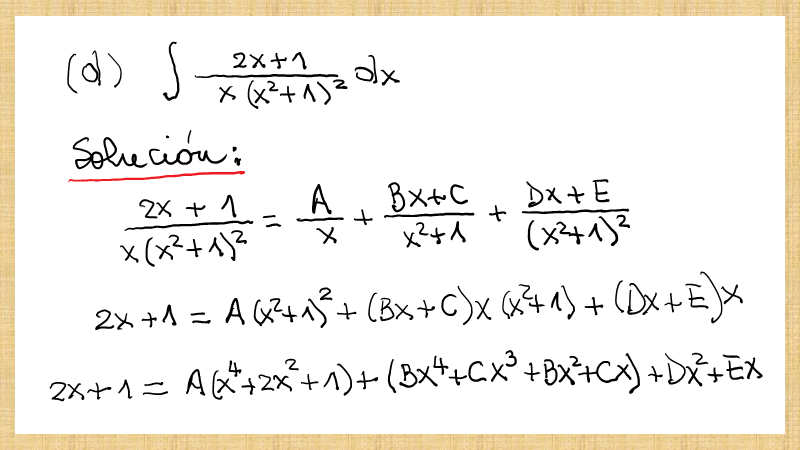 (d) ∫ (2x+1)/(x(x²+1)²) dx
Solución:
(2x+1)/(x(x²+1)²) = A/x + (Bx+C)/(x²+1) + (Dx+E)/(x²+1)²
2x+1 = A(x²+1)² + (Bx+C)x(x²+1) + (Dx+E)x
2x+1 = A(x⁴+2x²+1)+(Bx⁴+Cx³+Bx²+Cx)+Dx²+Ex